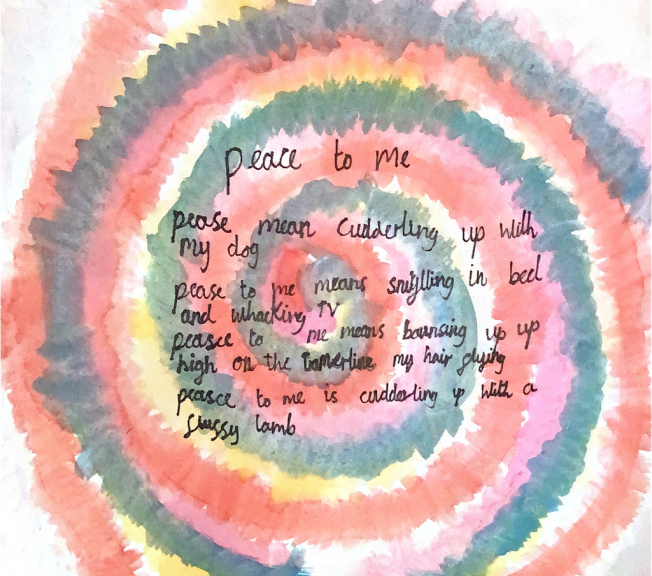 peace to me
pease mean cudderling up with
my dog
pease to me means snuglling in bed
and whacking TV
peasce to me means baunsing up up
high on the tramerline my hair flying
peasce to me is cudderling up with a
flussy lamb